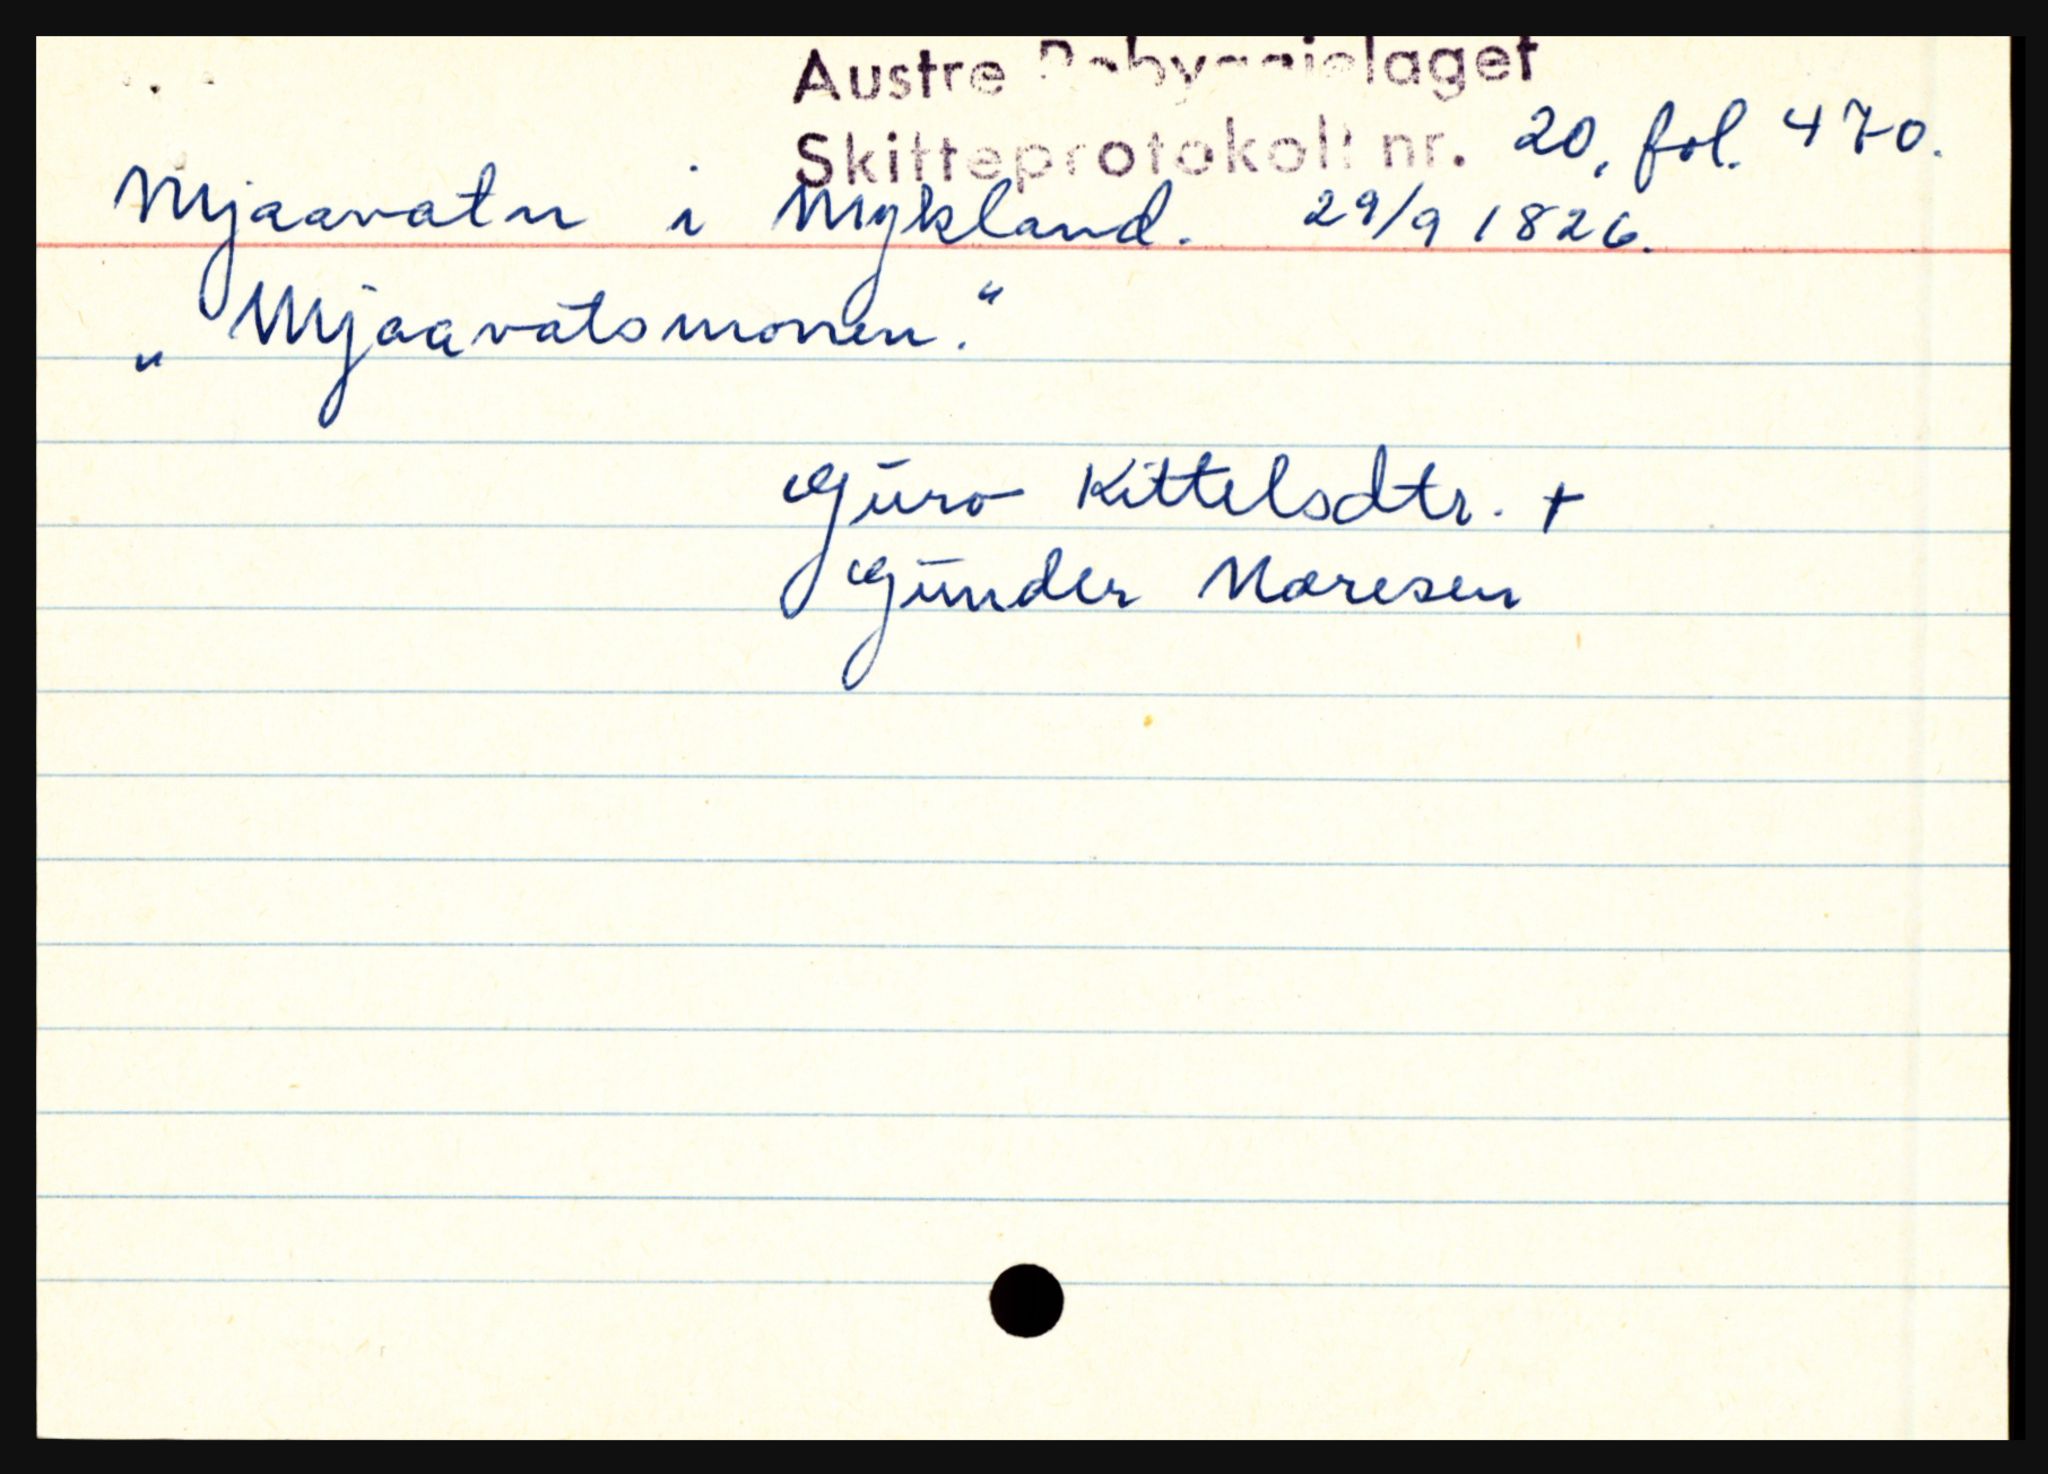 Austre Råbyggjelaget
Skifteprotokoll nr. 20, fol. 470.
Mjaavatn i Mykland. 29/9 1826.
„Mjaavatsmonen."
Guro Kittelsdtr. +
Gunder Noresen